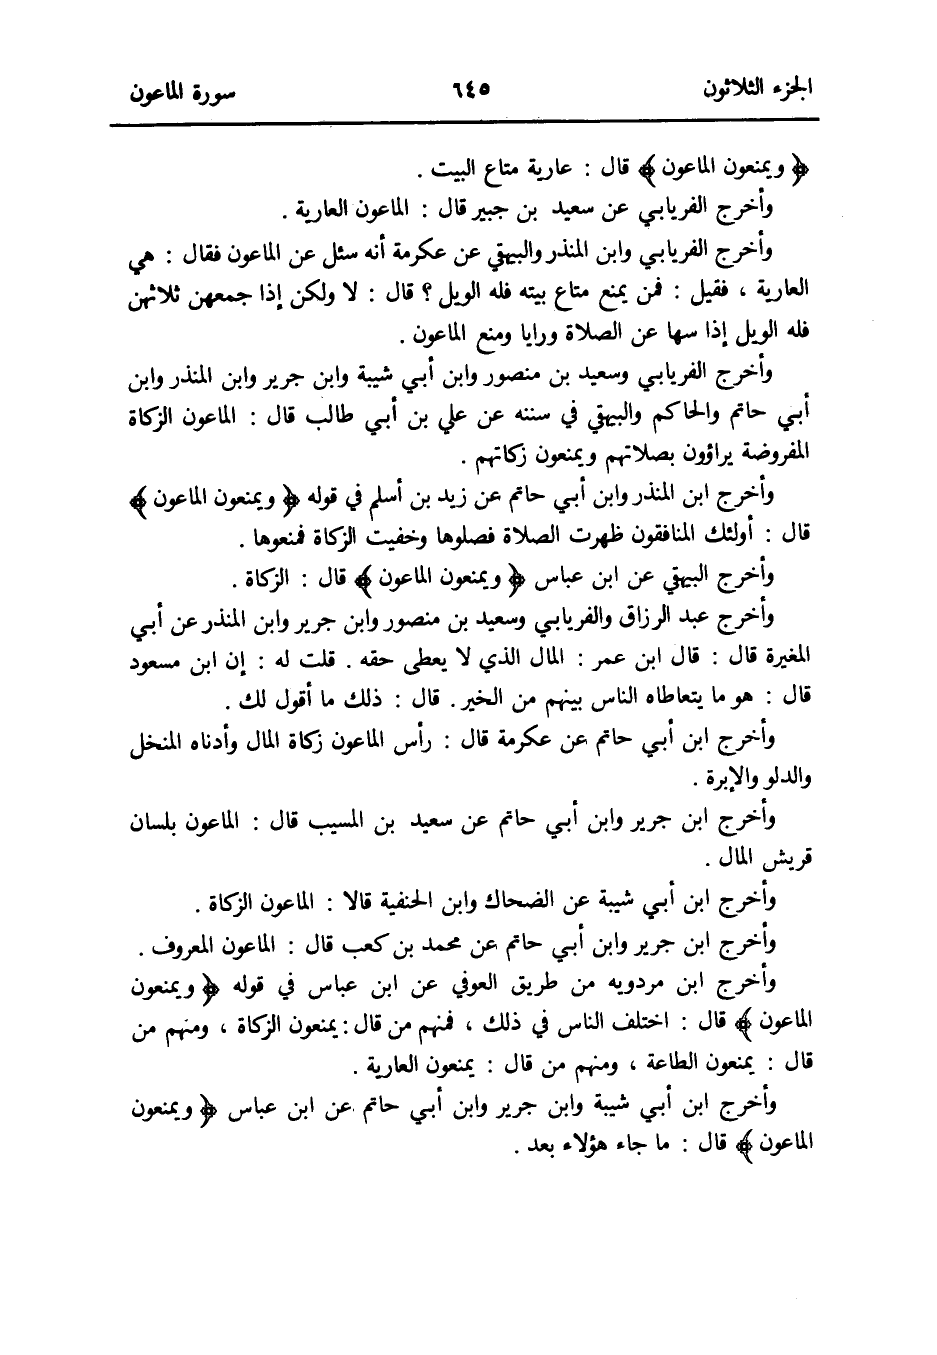 الجزء الثلاثون ٦٤٥ سورة الماعون
﴿ ويمنعون الماعون ﴾ قال : عارية متاع البيت .
وأخرج الفريابي عن سعيد بن جبير قال : الماعون العارية .
وأخرج الفريابي وابن المنذر والبيهقي عن عكرمة أنه سئل عن الماعون فقال : هي
العارية ، فقيل : فمن يمنع متاع بيته فله الويل ؟ قال : لا ولكن إذا جمعهن ثلاثهن
فله الويل إذا سها عن الصلاة ورايا ومنع الماعون .
وأخرج الفريابي وسعيد بن منصور وابن أبي شيبة وابن جرير وابن المنذر وابن
أبي حاتم والحاكم والبيهقي في سننه عن علي بن أبي طالب قال : الماعون الزكاة
المفروضة يراؤون بصلاتهم ويمنعون زكاتهم .
وأخرج ابن المنذر وابن أبي حاتم عن زيد بن أسلم في قوله ﴿ ويمنعون الماعون ﴾
قال : أولئك المنافقون ظهرت الصلاة فصلوها وخفيت الزكاة فمنعوها .
وأخرج البيهقي عن ابن عباس ﴿ ويمنعون الماعون ﴾ قال : الزكاة .
وأخرج عبد الرزاق والفريابي وسعيد بن منصور وابن جرير وابن المنذر عن أبي
المغيرة قال : قال ابن عمر : المال الذي لا يعطى حقه . قلت له : إن ابن مسعود
قال : هو ما يتعاطاه الناس بينهم من الخير . قال : ذلك ما أقول لك .
وأخرج ابن أبي حاتم عن عكرمة قال : رأس الماعون زكاة المال وأدناه المنخل
والدلو والإبرة .
وأخرج ابن جرير وابن أبي حاتم عن سعيد بن المسيب قال : الماعون بلسان
قريش المال .
وأخرج ابن أبي شيبة عن الضحاك وابن الحنفية قالا : الماعون الزكاة .
وأخرج ابن جرير وابن أبي حاتم عن محمد بن كعب قال : الماعون المعروف .
وأخرج ابن مردويه من طريق العوفي عن ابن عباس في قوله ﴿ ويمنعون
الماعون ﴾ قال : اختلف الناس في ذلك ، فمنهم من قال : يمنعون الزكاة ، ومنهم من
قال : يمنعون الطاعة ، ومنهم من قال : يمنعون العارية .
وأخرج ابن أبي شيبة وابن جرير وابن أبي حاتم عن ابن عباس ﴿ ويمنعون
الماعون ﴾ قال : ما جاء هؤلاء بعد .